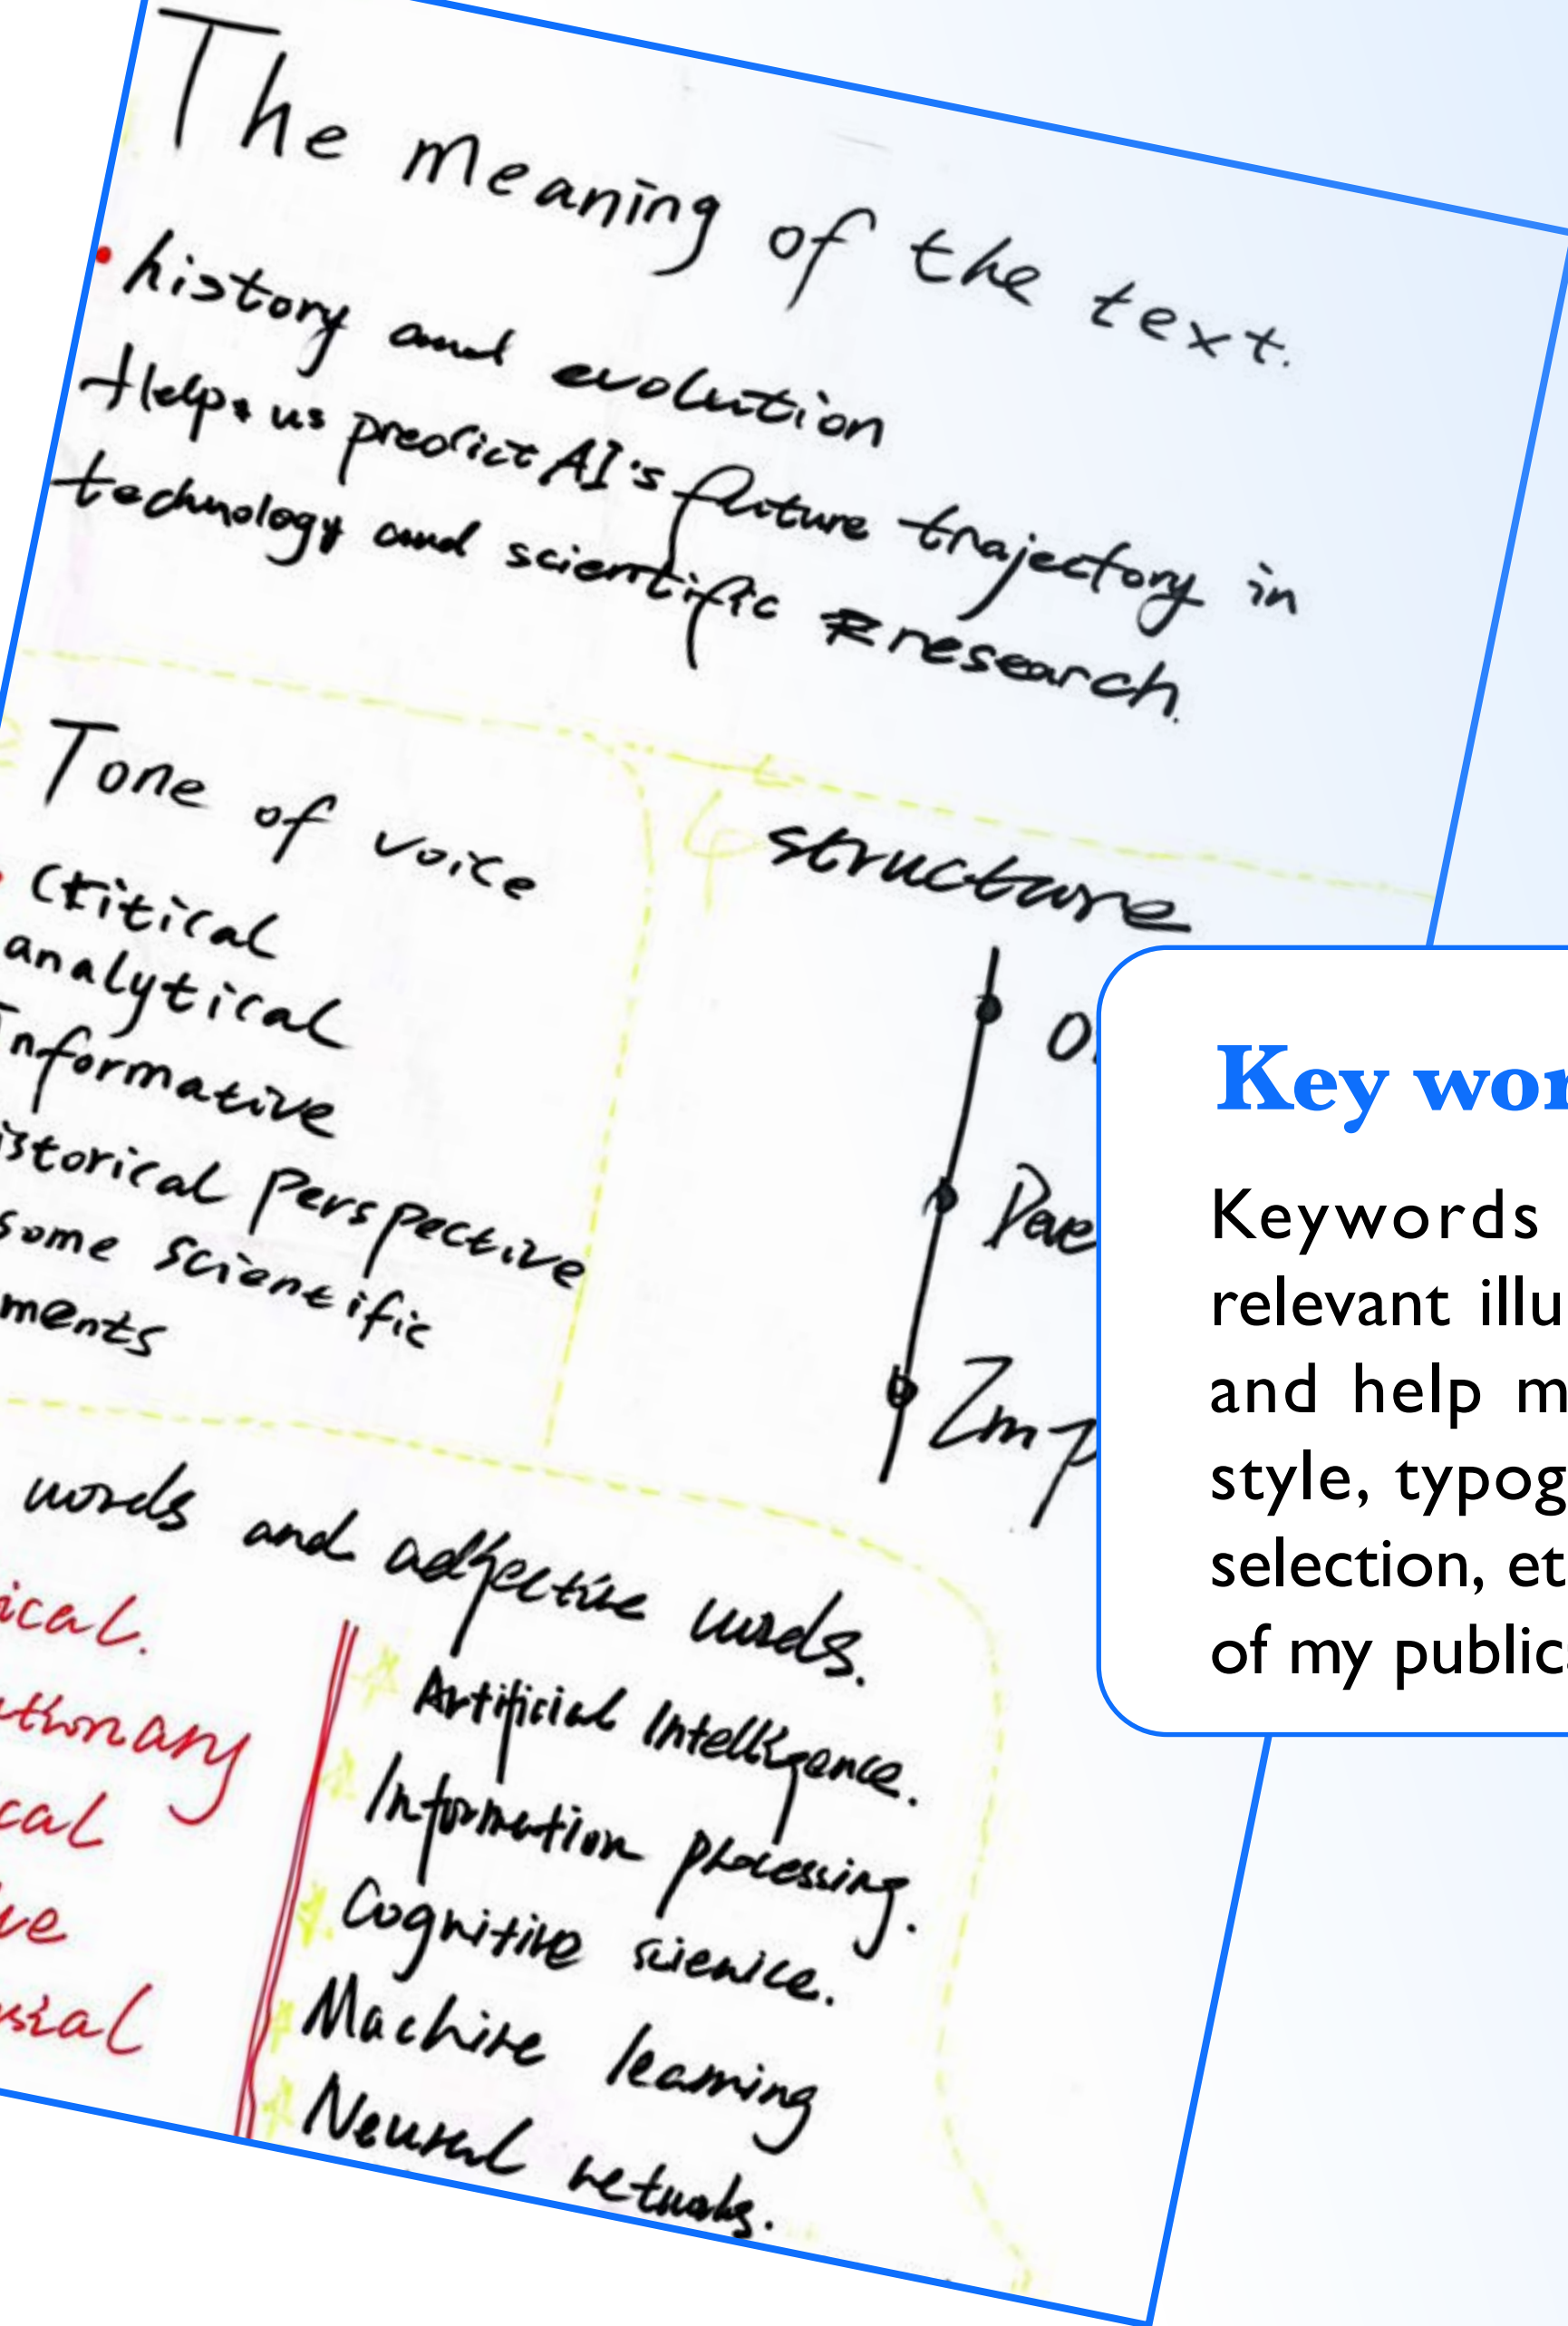 The meaning of the text.
history and evolution
Helps us predict AI's future trajectory in
technology and scientific research.
Tone of voice
Critical
analytical
Informative
istorical perspective
some scientific
ments
structure
O
Deve
Imp
words and adjective words.
ical.
utionary
cal
ve
sial
Artificial Intelligence.
Information processing.
Cognitive scienice.
Machine learning
Neural networks.
Key wor
Keywords
relevant illu
and help m
style, typog
selection, et
of my public